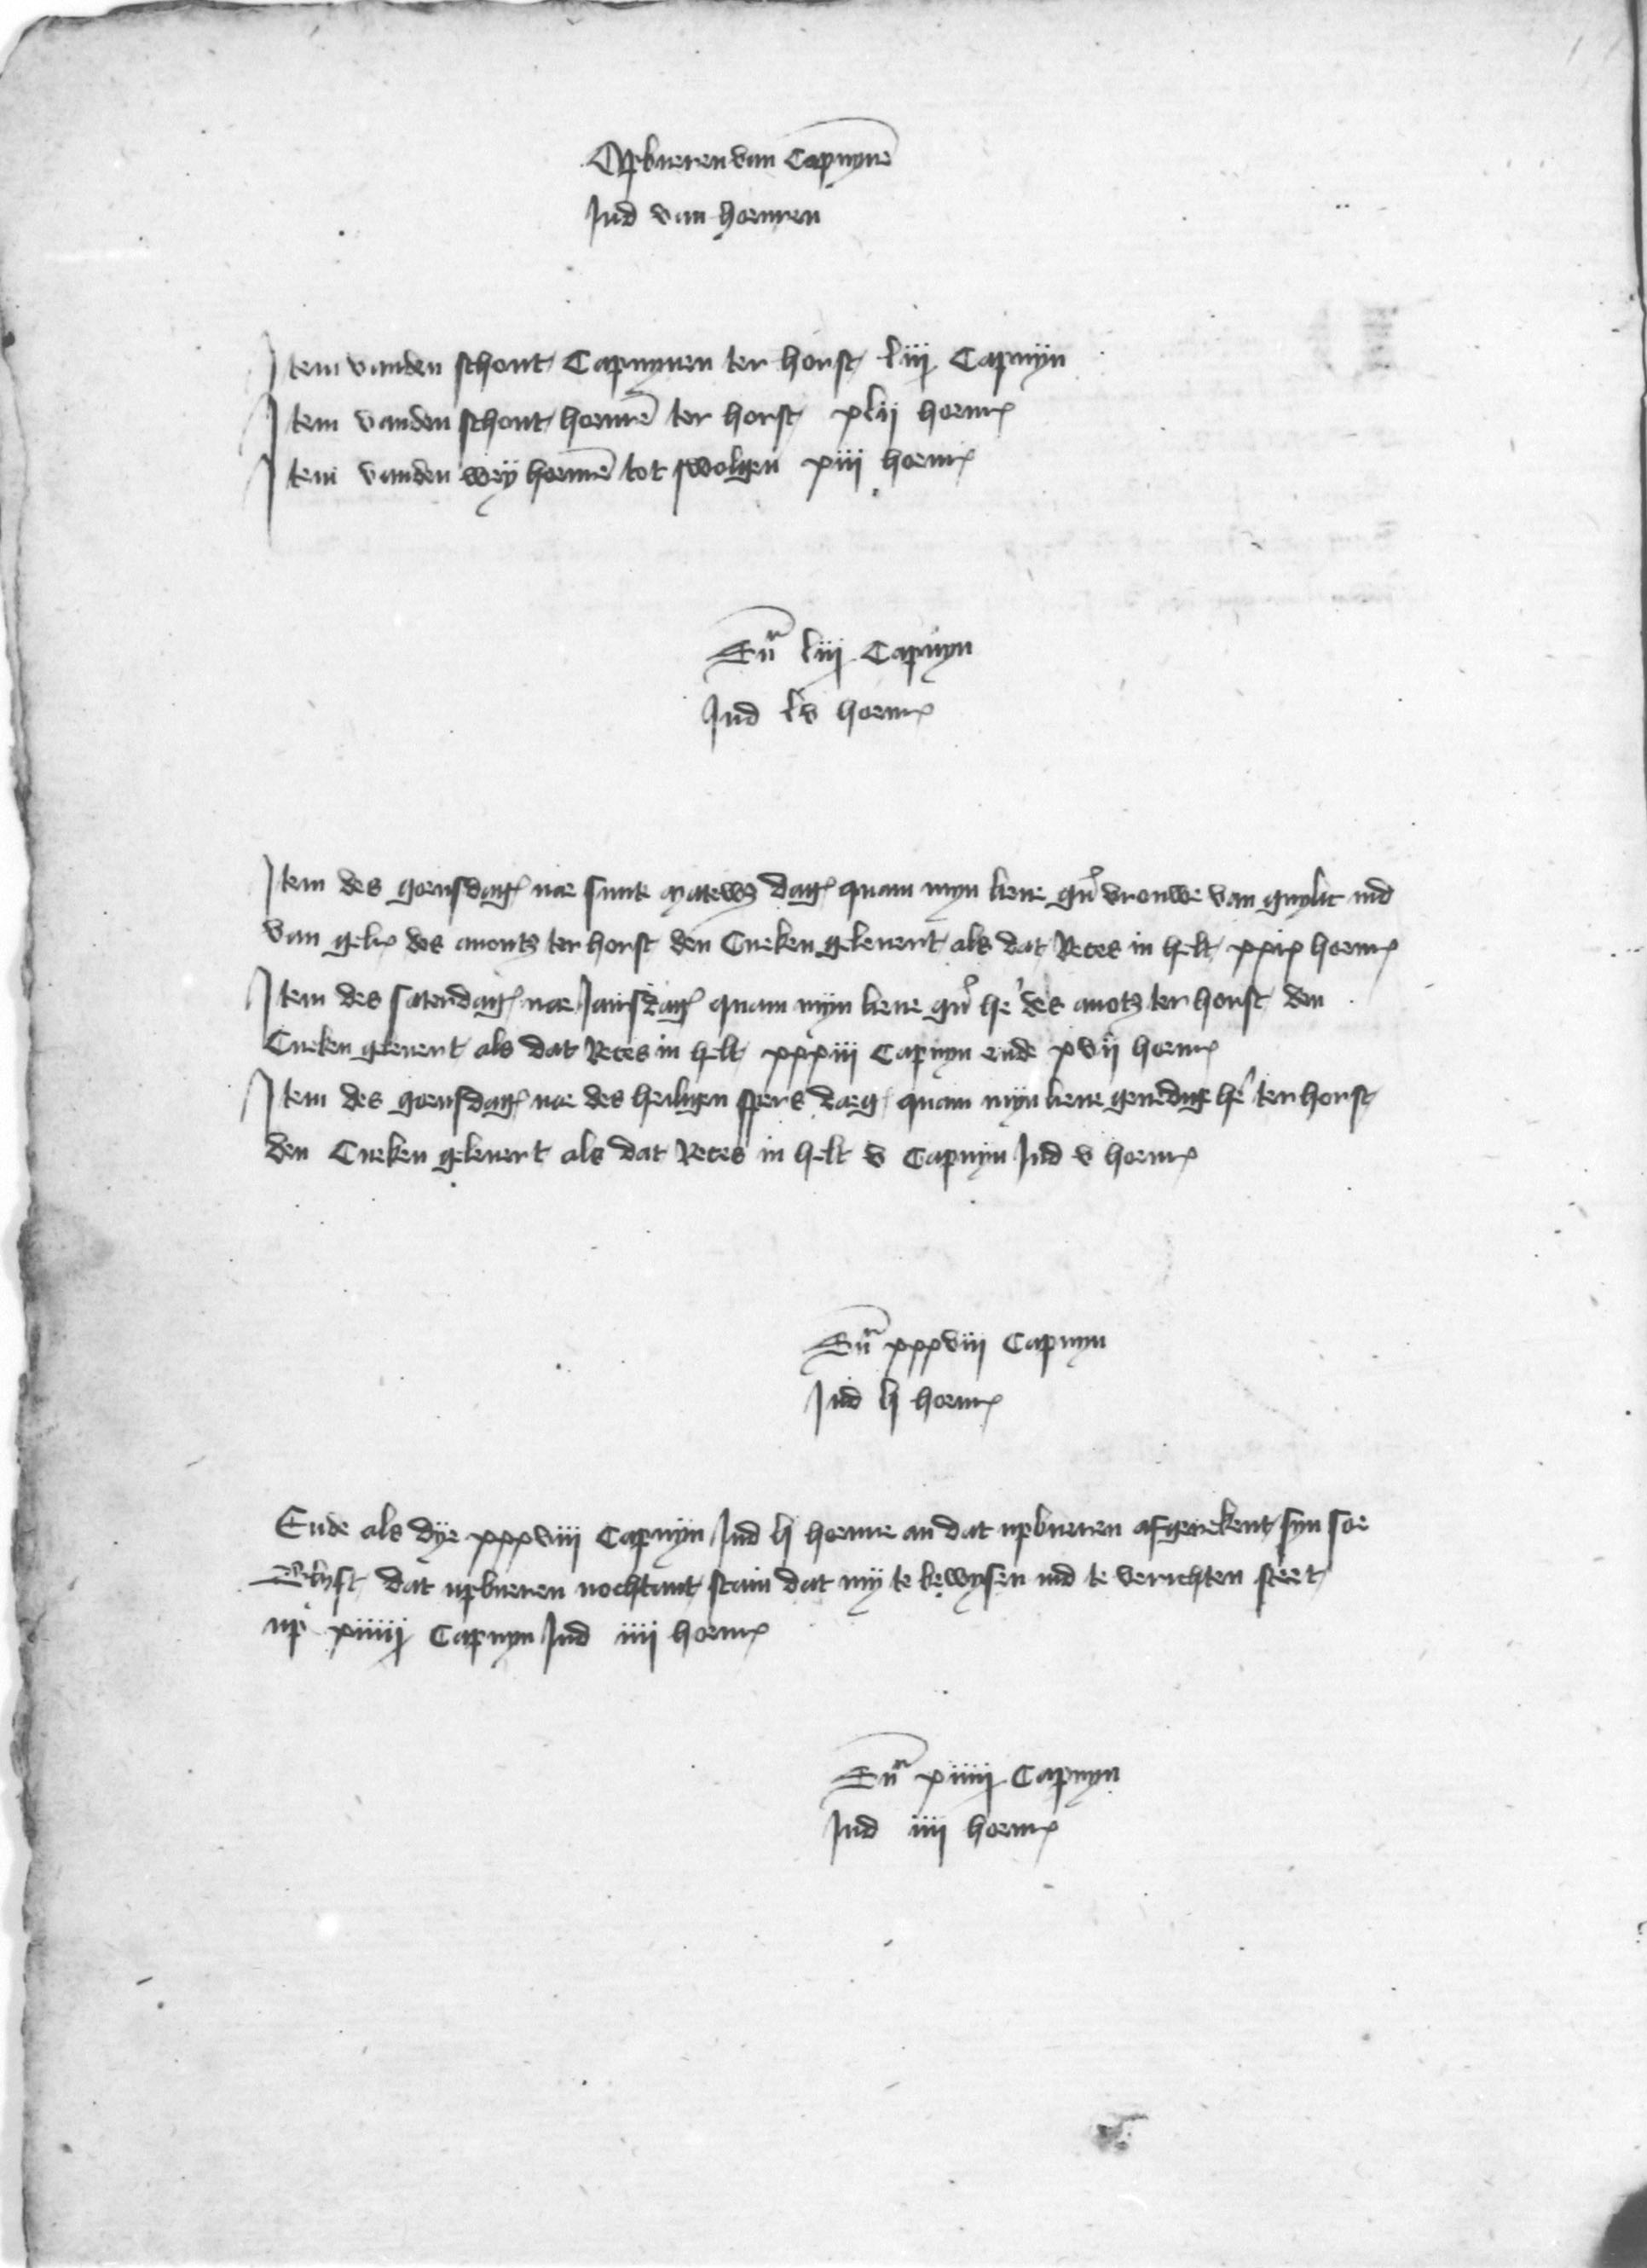 Opbueren van Capuyne
Ind van hoenren
Item vanden schout Capuynen ter horst liij Capuyn
Item vanden schout hoenre ter horst xlij hoenr
Item vanden wey hoenre tot swolgen xiij hoenr
Sũa liij Capuyn
Ind lv hoenr
Item des goensdag nae sunte mateus dag quam myn lieue gn vrouwe van guylic ind
van gelr des auontz ter horst den Cueken geleuert als dat Reces in helt xxix hoenr
Item des satersdag nae Jairsdag quam myn lieue gn he des auotz ter horst den
Cueken geleuert als dat Reces in helt xxxiii Capuyn ende xvii hoenr
Item des goensdag nae des heiligen spers daeg quam myn lieue genedige he ter horst
den Cueken geleuert als dat Reces in helt v Capuyn Ind v hoenr
Sũa xxxviii Capuyn
Ind lj hoenr
Ende als dye xxxviii Capuyn Ind lj hoenre an dat upbueren afgerekent syn soe
dat upbueren nochtant stain dat my te bewysen ind te verrichten steet
up xiiiij Capuyn Ind iiij hoenr
Sũa xiiiij Capuyn
Ind iiij hoenr